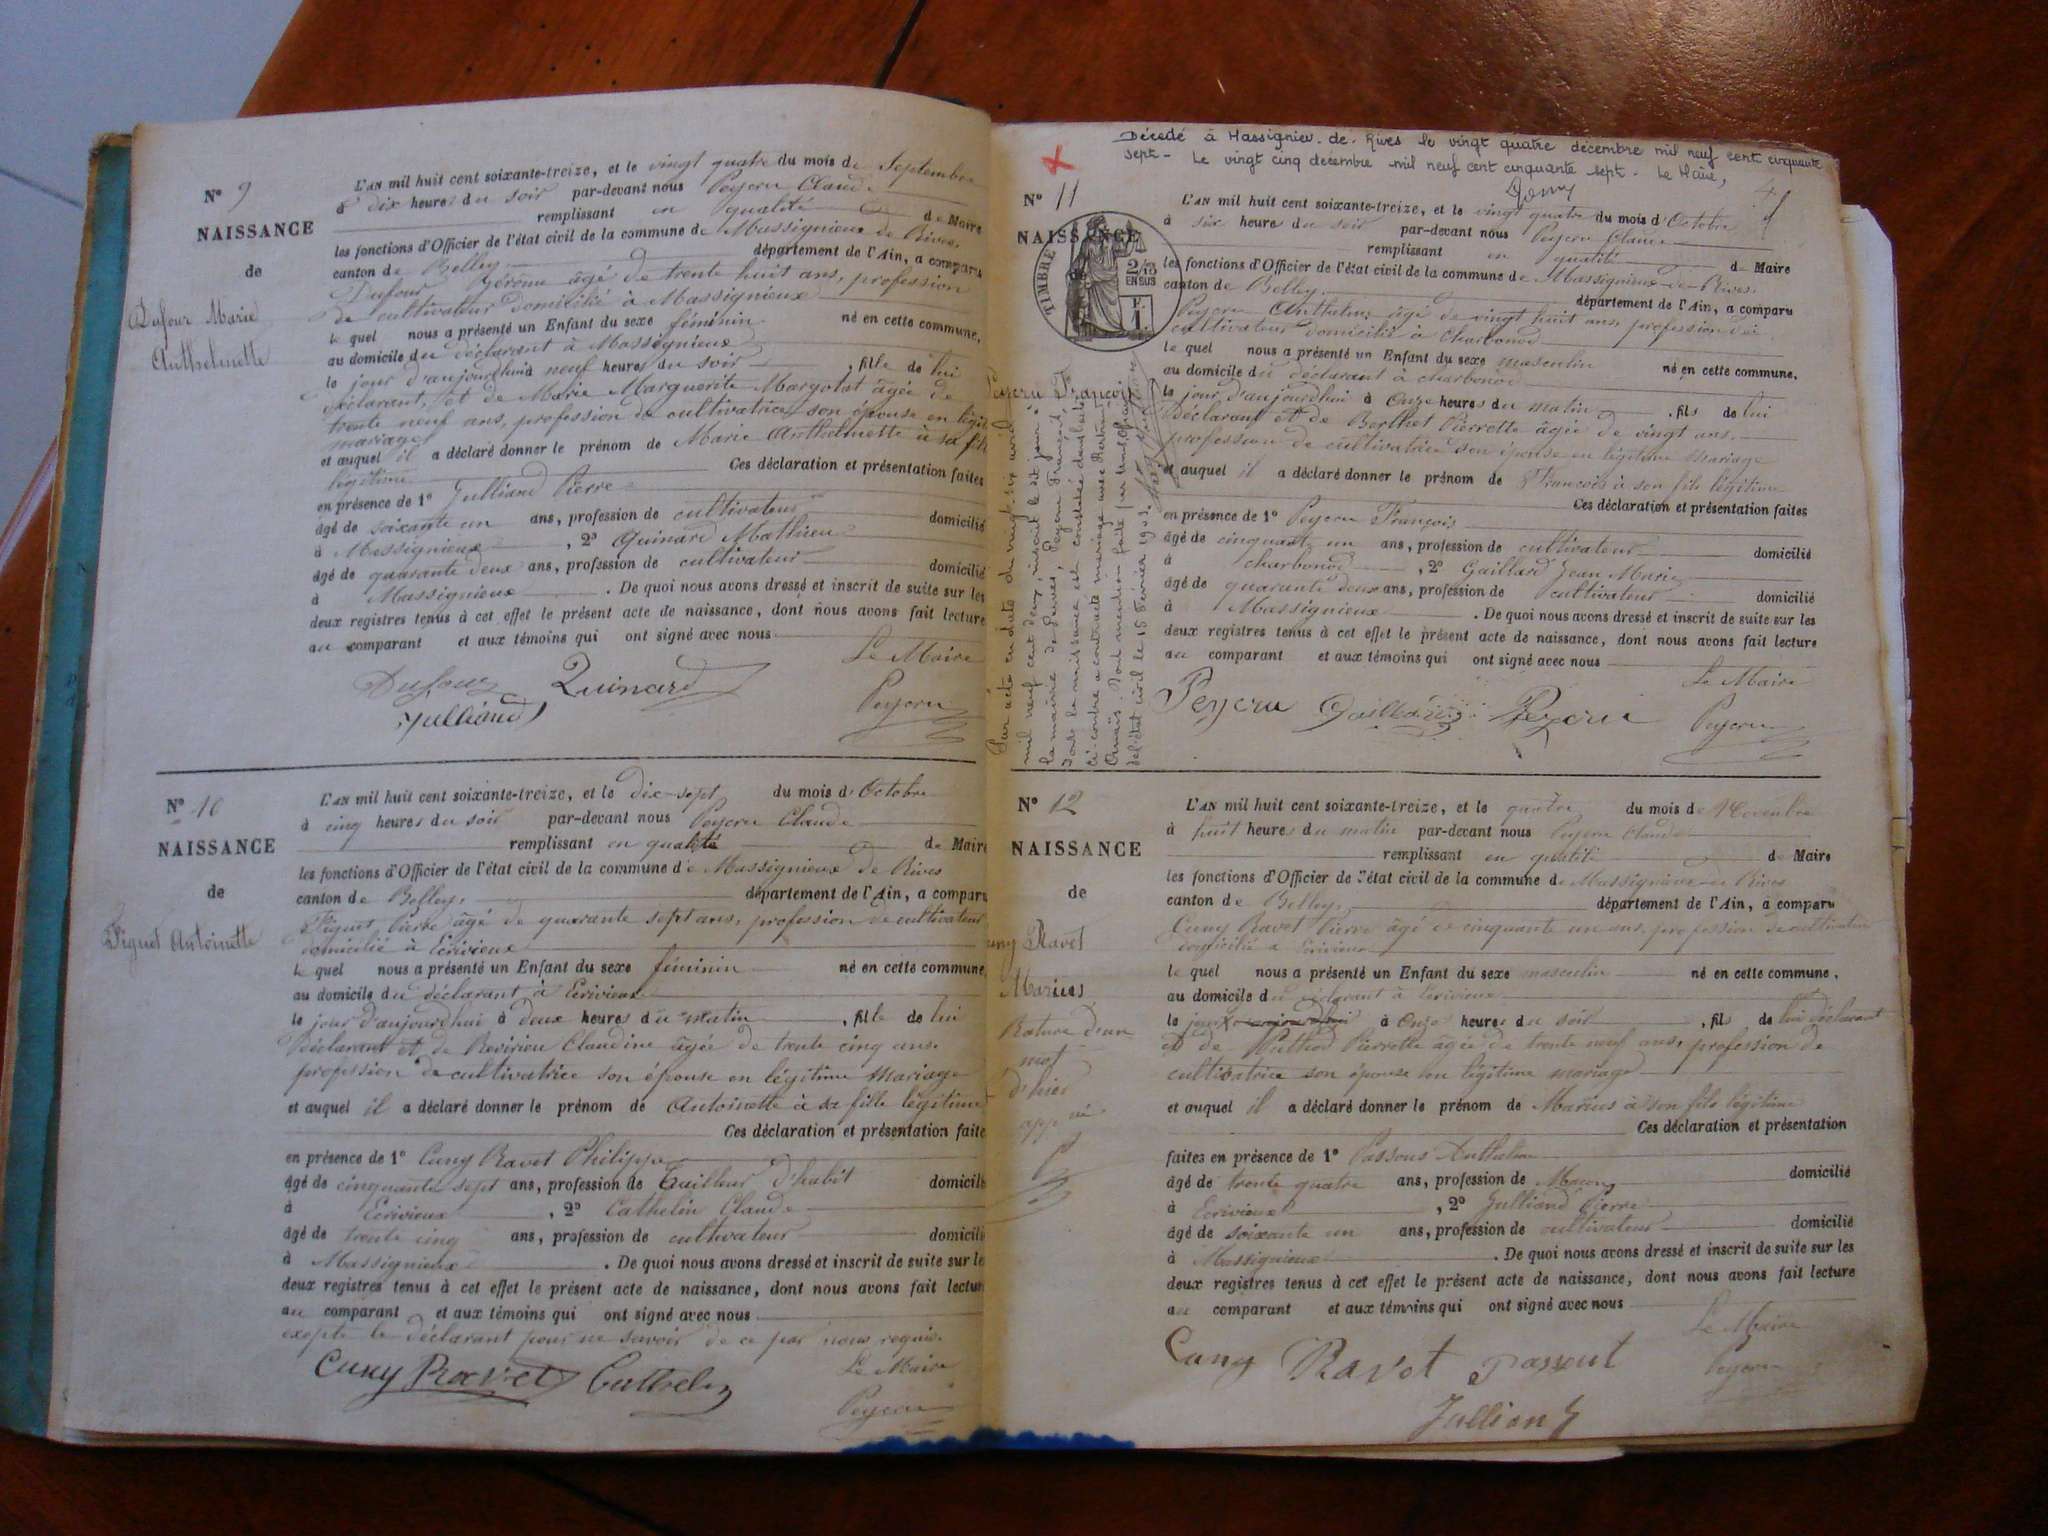 N° 9
NAISSANCE
de
Dufour Marie
Anthelmette
L'AN mil huit cent soixante-treize, et le vingt quatre du mois de Septembre
à dix heures du soir par-devant nous Peycru Claude
remplissant en qualité de Maire
les fonctions d'Officier de l'état civil de la commune de Massignieux de Rives,
canton de Belley, département de l'Ain, a comparu
Dufour Jérôme âgé de trente huit ans, profession
de cultivateur domicilié à Massignieux
le quel nous a présenté un Enfant du sexe féminin né en cette commune,
au domicile du déclarant à Massignieux
le jour d'aujourd'hui à neuf heures du soir, fille de lui
déclarant, et de Marie Marguerite Margotat âgée de
trente neuf ans, profession de cultivatrice son épouse en légit.
mariage
et auquel il a déclaré donner le prénom de Marie Anthelmette à sa fille
légitime Ces déclaration et présentation faites
en présence de 1° Julliand Pierre
âgé de soixante un ans, profession de cultivateur domicilié
à Massignieux, 2° Quinard Mathieu
âgé de quarante deux ans, profession de cultivateur domicilié
à Massignieux. De quoi nous avons dressé et inscrit de suite sur les
deux registres tenus à cet effet le présent acte de naissance, dont nous avons fait lecture
au comparant et aux témoins qui ont signé avec nous
Le Maire
Dufour Quinard Peycru
Julliand
N° 10
NAISSANCE
de
Piguet Antoinette
L'AN mil huit cent soixante-treize, et le dix-sept du mois d'Octobre
à cinq heures du soir par-devant nous Peycru Claude
remplissant en qualité de Maire
les fonctions d'Officier de l'état civil de la commune de Massignieux de Rives
canton de Belley, département de l'Ain, a comparu
Piguet Pierre âgé de quarante sept ans, profession de cultivateur
domicilié à Ecrivieux
le quel nous a présenté un Enfant du sexe féminin né en cette commune,
au domicile du déclarant à Ecrivieux
le jour d'aujourd'hui à deux heures du matin, fille de lui
Déclarant et de Revirieu Claudine âgée de trente cinq ans.
profession de cultivatrice son épouse en légitime mariage
et auquel il a déclaré donner le prénom de Antoinette à sa fille légitime
Ces déclaration et présentation faite
en présence de 1° Cuny Ravet Philippe
âgé de cinquante sept ans, profession de Tailleur d'habit domicilié
à Ecrivieux, 2° Cathelin Claude
âgé de trente cinq ans, profession de cultivateur domicilié
à Massignieux. De quoi nous avons dressé et inscrit de suite sur le
deux registres tenus à cet effet le présent acte de naissance, dont nous avons fait lecture
au comparant et aux témoins qui ont signé avec nous
exepté le déclarant pour ne savoir de ce par nous requis.
Le Maire
Cuny Ravet Cathelin Peycru
Décédé à Massignieu-de-Rives le vingt quatre décembre mil neuf cent cinquante
sept - Le vingt cinq décembre mil neuf cent cinquante sept - Le Maire,
N° 11
NAISSANCE
TIMBRE
2/10
EN SUS
Peycru François
Par acte en date du vingt-six avril
mil neuf cent deux, inscrit le dit jour à
la mairie de Peycru François
dont la naissance est constatée dans l'acte
ci-contre a contracté mariage avec
Dont mention faite par
de l'état civil le 15 Février 1903.
L'AN mil huit cent soixante-treize, et le vingt quatre du mois d'Octobre
à six heure du soir par-devant nous Peycru Claude
remplissant en qualité de Maire
les fonctions d'Officier de l'état civil de la commune de Massignieux-de-Rives.
canton de Belley. département de l'Ain, a comparu
Peycru Anthelme âgé de vingt huit ans, profession de
cultivateur domicilié à Charbonod
le quel nous a présenté un Enfant du sexe masculin né en cette commune.
au domicile du déclarant à charbonod
le jour d'aujourdhui à Onze heures du matin, fils de lui
Déclarant et de Berthet Pierrette âgée de vingt ans.
profession de cultivatrice son épouse en légitime mariage
et auquel il a déclaré donner le prénom de François à son fils légitime
Ces déclaration et présentation faites
en présence de 1° Peycru François
âgé de cinquante un ans, profession de cultivateur domicilié
à charbonod, 2° Gaillard Jean Marie
âgé de quarante deux ans, profession de cultivateur domicilié
à Massignieux. De quoi nous avons dressé et inscrit de suite sur les
deux registres tenus à cet effet le présent acte de naissance, dont nous avons fait lecture
au comparant et aux témoins qui ont signé avec nous
Le Maire
Peycru Gaillard Peycru Peycru
N° 12
NAISSANCE
de
Cuny Ravet
Marius
Rature d'un
mot
L'AN mil huit cent soixante-treize, et le quatre du mois de Novembre
à huit heures du matin par-devant nous Peycru Claude
remplissant en qualité de Maire
les fonctions d'Officier de l'état civil de la commune de Massignieux de Rives
canton de Belley, département de l'Ain, a comparu
Cuny Ravet Pierre âgé de cinquante un ans, profession de cultivateur
domicilié à Ecrivieux
le quel nous a présenté un Enfant du sexe masculin né en cette commune.
au domicile du déclarant à Ecrivieux
le jour à Onze heures du soir, fils de lui déclarant
et de Pierrette âgée de trente neuf ans, profession de
cultivatrice son épouse en légitime mariage
et auquel il a déclaré donner le prénom de Marius à son fils légitime
Ces déclaration et présentation
faites en présence de 1° Passous Anthelme
âgé de trente quatre ans, profession de Maçon domicilié
à Ecrivieux, 2° Julliand Pierre
âgé de soixante un ans, profession de cultivateur domicilié
à Massignieux. De quoi nous avons dressé et inscrit de suite sur les
deux registres tenus à cet effet le présent acte de naissance, dont nous avons fait lecture
au comparant et aux témoins qui ont signé avec nous
Le Maire
Cuny Ravet Peycru
Julliand